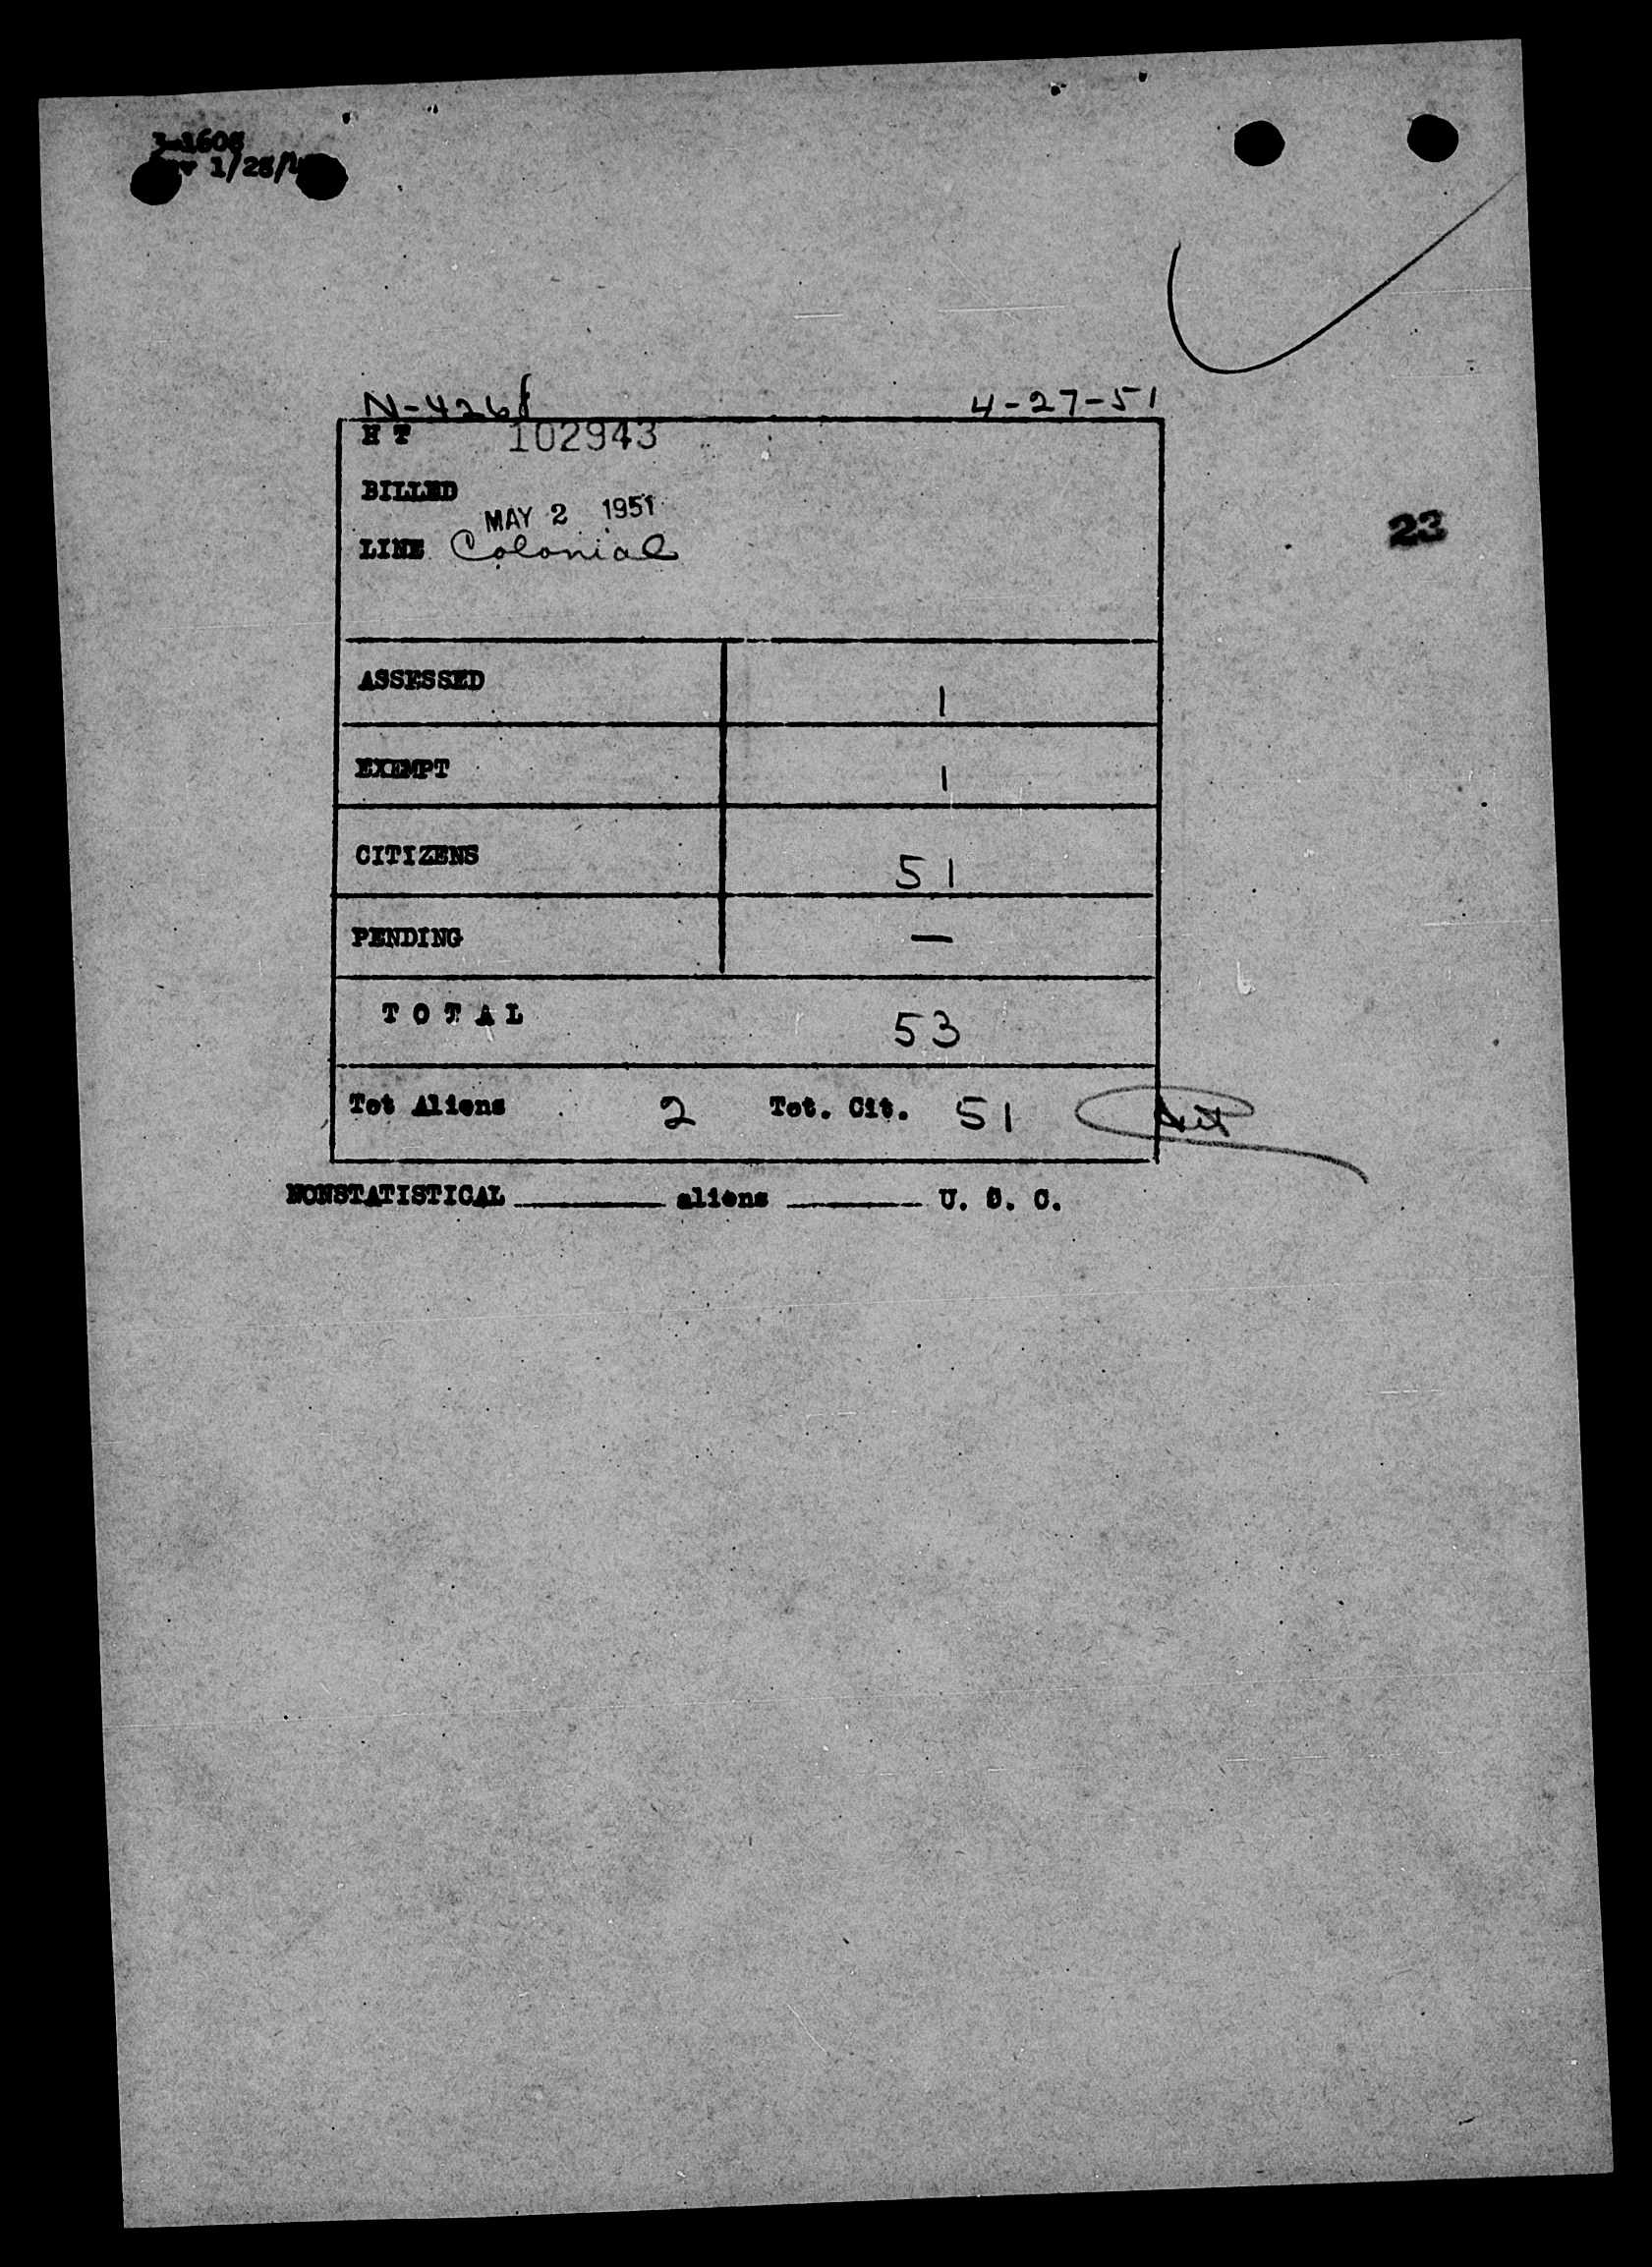 3-1608
1/28/4
N-4268 4-27-51
H T 102943
BILLED
MAY 2 1951
LINE Colonial
23
ASSESSED 1
EXEMPT 1
CITIZENS 51
PENDING —
T O T A L 53
Tot Aliens 2 Tot. Cit. 51
NONSTATISTICAL ________ aliens ________ U. S. C.